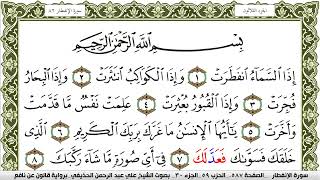 الجزء الثلاثون
سورة الإنفطار ٨٢
بِسْمِ اللَّهِ الرَّحْمَٰنِ الرَّحِيمِ
إِذَا اَ۬لسَّمَآءُ اُ۪نفَطَرَتْ ١ وَإِذَا اَ۬لْكَوَاكِبُ اُ۪نتَثَرَتْ ٢ وَإِذَا اَ۬لْبِحَارُ
فُجِّرَتْ ٣ وَإِذَا اَ۬لْقُبُورُ بُعْثِرَتْ ٤ عَلِمَتْ نَفْسٌ مَّا قَدَّمَتْ
وَأَخَّرَتْ ٥ يَٰٓأَيُّهَا اَ۬لْإِنسَٰنُ مَا غَرَّكَ بِرَبِّكَ اَ۬لْكَرِيمِ ٦ اِ۬لَّذِے
خَلَقَكَ فَسَوَّىٰكَ فَعَدَّلَكَ ٧ فِےٓ أَيِّ صُورَةٍ مَّا شَآءَ رَكَّبَكَ ٨
سورة الإنفطار . الصفحة ٥٨٧ . الحزب ٥٩ . الجزء ٣٠ . بصوت الشيخ علي عبد الرحمن الحذيفي . برواية قالون عن نافع